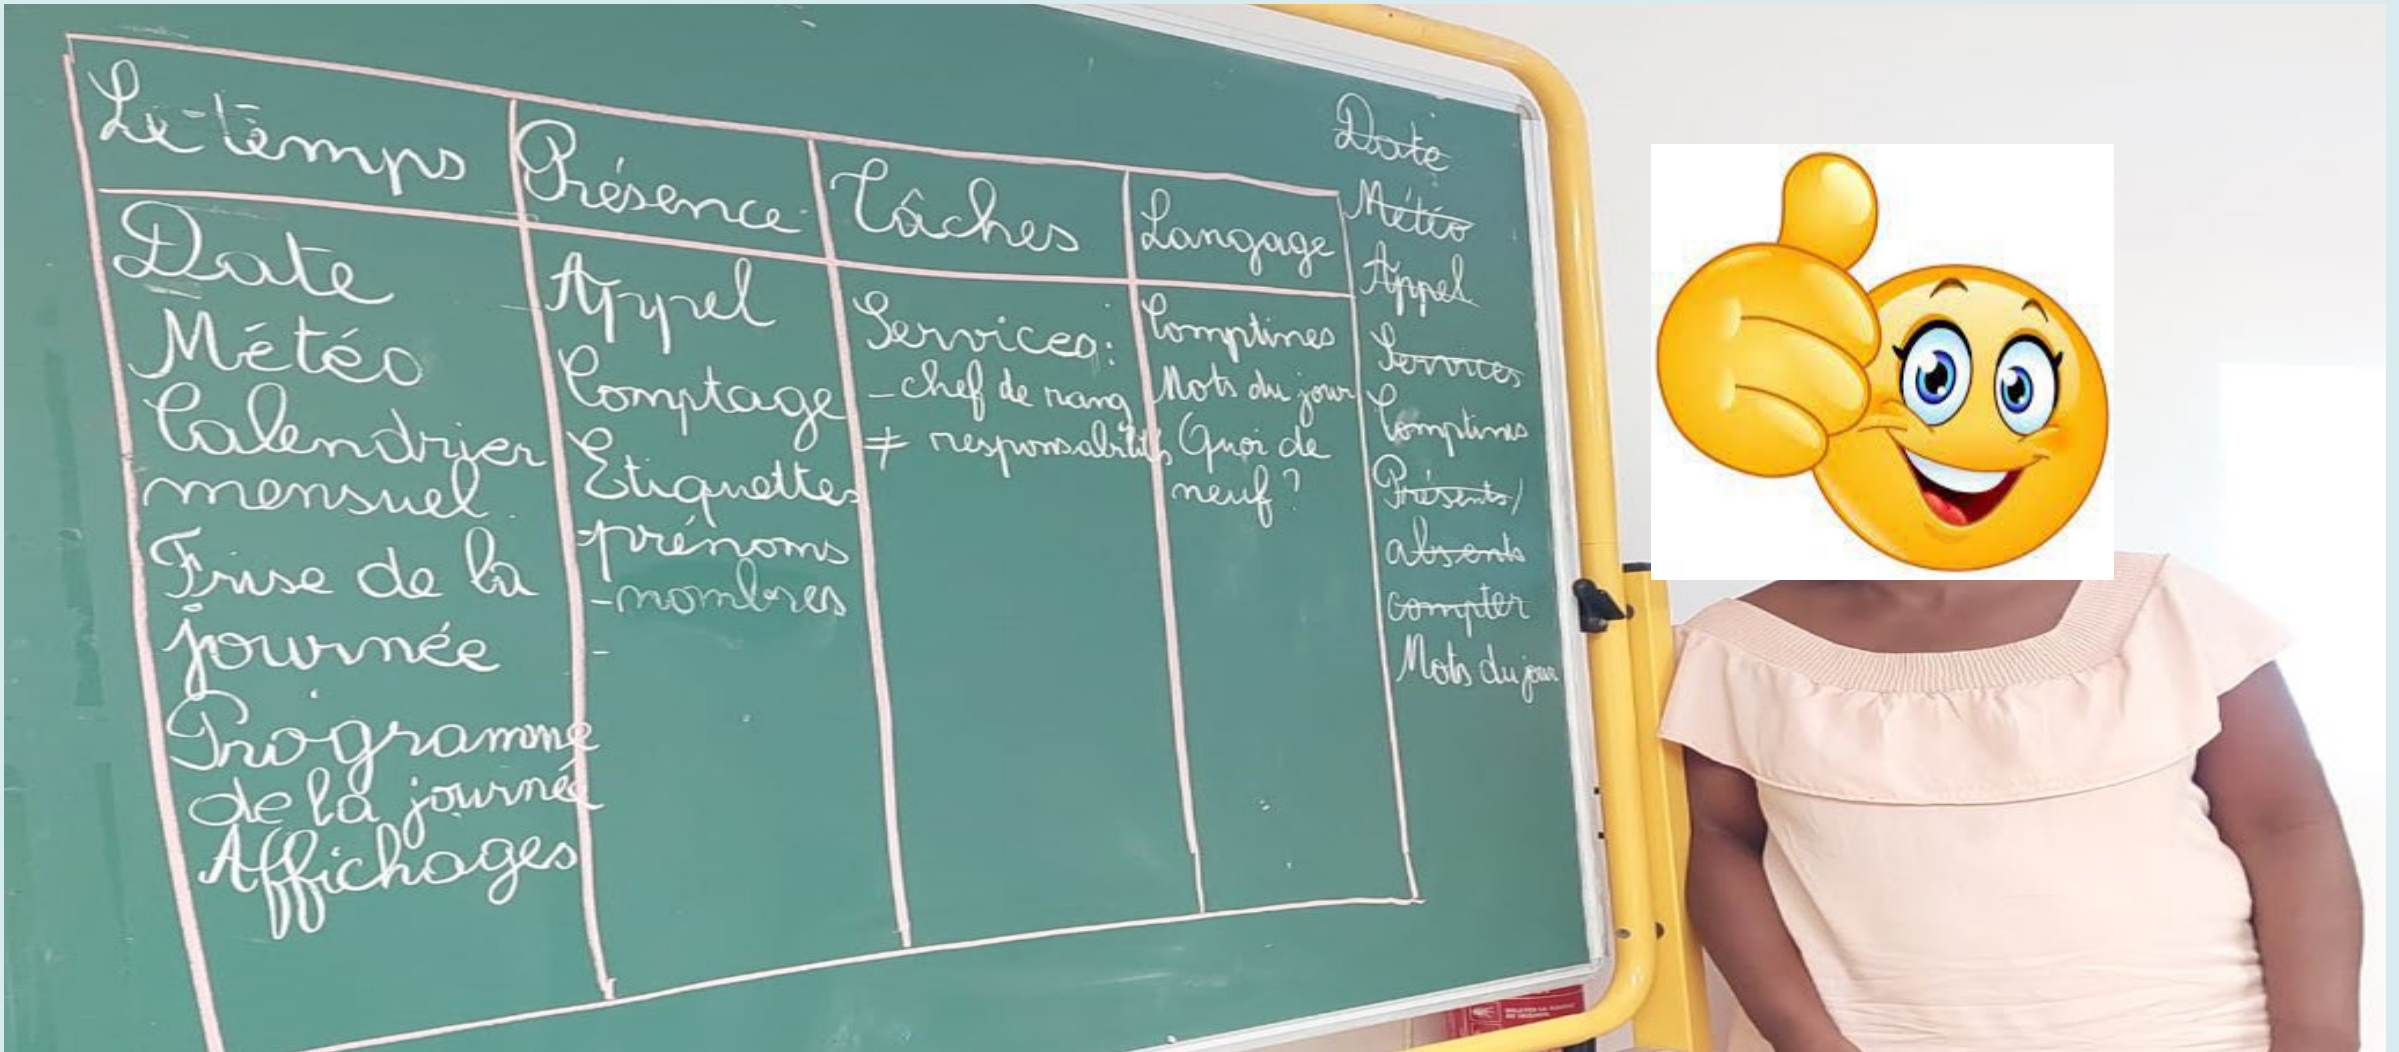 Le temps
Date
Météo
Calendrier
mensuel.
Frise de la
journée
Programme
de la journée
Affichages
Présence
Appel
Comptage
Etiquettes
-prénoms
-nombres
-
Tâches
Services:
-chef de rang
≠ responsabilités
Langage
Comptines
Mots du jour
Quoi de
neuf?
Date
Météo
Appel
Services
Comptines
Présents/
absents
compter
Mots du jour